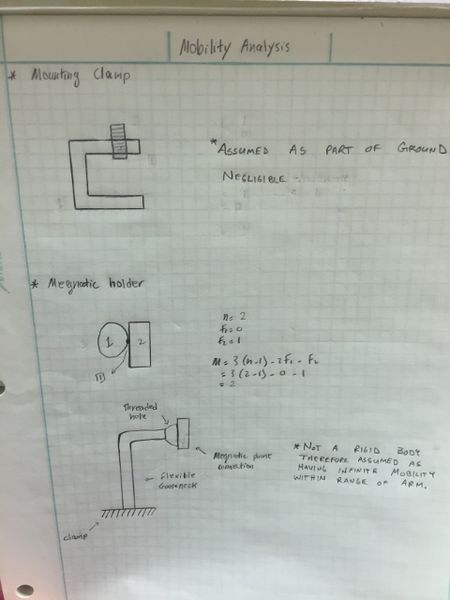 Mobility Analysis
* Mounting Clamp
* ASSUMED AS PART OF GROUND
NEGLIGIBLE
* Megnatic holder
1 2
n = 2
f₁ = 0
f₂ = 1
M = 3(n-1) - 2f₁ - f₂
= 3(2-1) - 0 - 1
= 2
Threaded
hole
Megnatic phone
connection
Flexible
Gooseneck
clamp
* NOT A RIGID BODY
THEREFORE ASSUMED AS
HAVING INFINITE MOBILITY
WITHIN RANGE OF ARM.